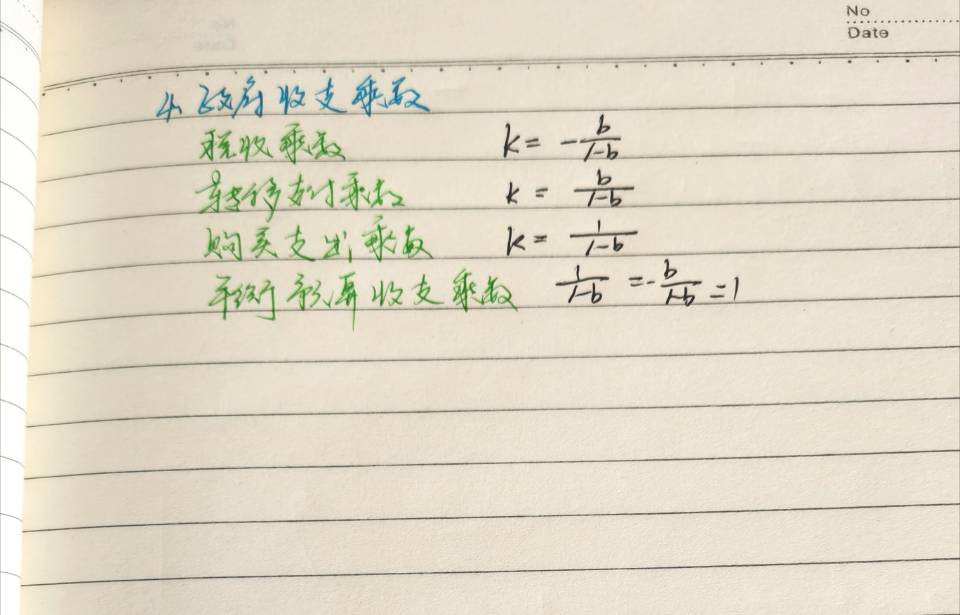 No
Date
4、政府收支乘数
税收乘数 k = -b/1-b
转移支付乘数 k = b/1-b
购买支出乘数 k = 1/1-b
平衡预算收支乘数 1/1-b = -b/1-b = 1